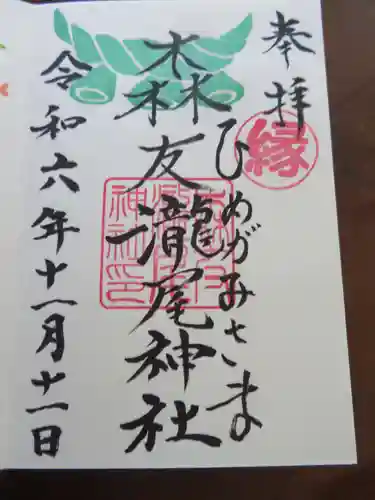 奉拝
縁
ひめがみさま
森友瀧尾神社
令和六年十一月十一日